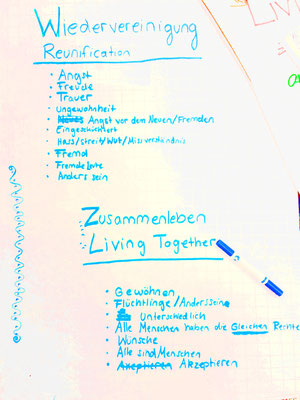 Wiedervereinigung
Reunification
• Angst
• Freude
• Trauer
• Ungewohnheit
• Angst vor dem Neuen/Fremden
• Eingeschüchtert
• Hass/Streit/Wut/Missverständnis
• Fremd
• Fremde Leute
• Anders sein
Zusammenleben
Living Together
• Gewöhnen
• Flüchtlinge/Anderssein
• Unterschiedlich
• Alle Menschen haben die Gleichen Rechte
• Wünsche
• Alle sind Menschen
• Akzeptieren